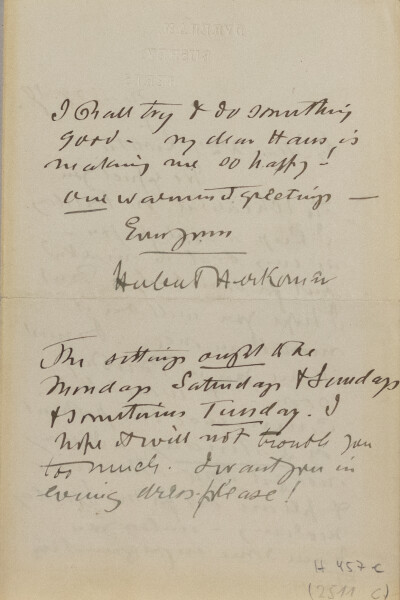 I shall try & do something
good - my dear Hans, is
making me so happy!
our warmest greetings —
Ever Yours
Hubert Herkomer
The sittings ought to be
Mondays Saturdays & Sundays
& sometimes Tuesday. I
hope it will not trouble you
too much. I want you in
evening dress please!
H 457 c
(2511 c)